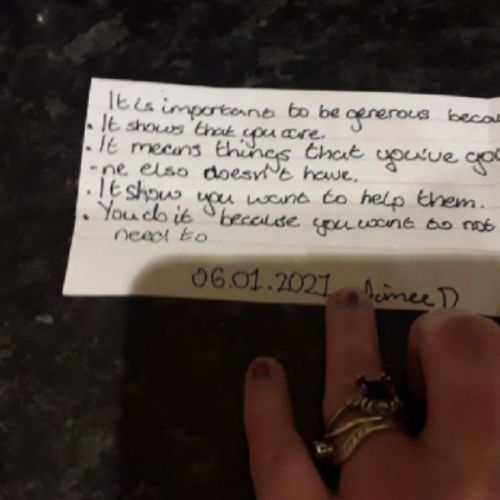 It is important to be generous becau
. It shows that you are.
. It means things that you've got
-ne elso doesn't have.
. It show you want to help them.
. You do it because you want to not
need to
06.01.2021 Aimee D